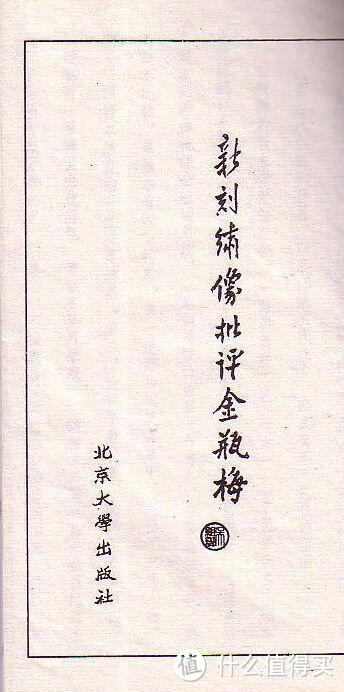 新刻绣像批评金瓶梅
北京大學出版社
值 什么值得买